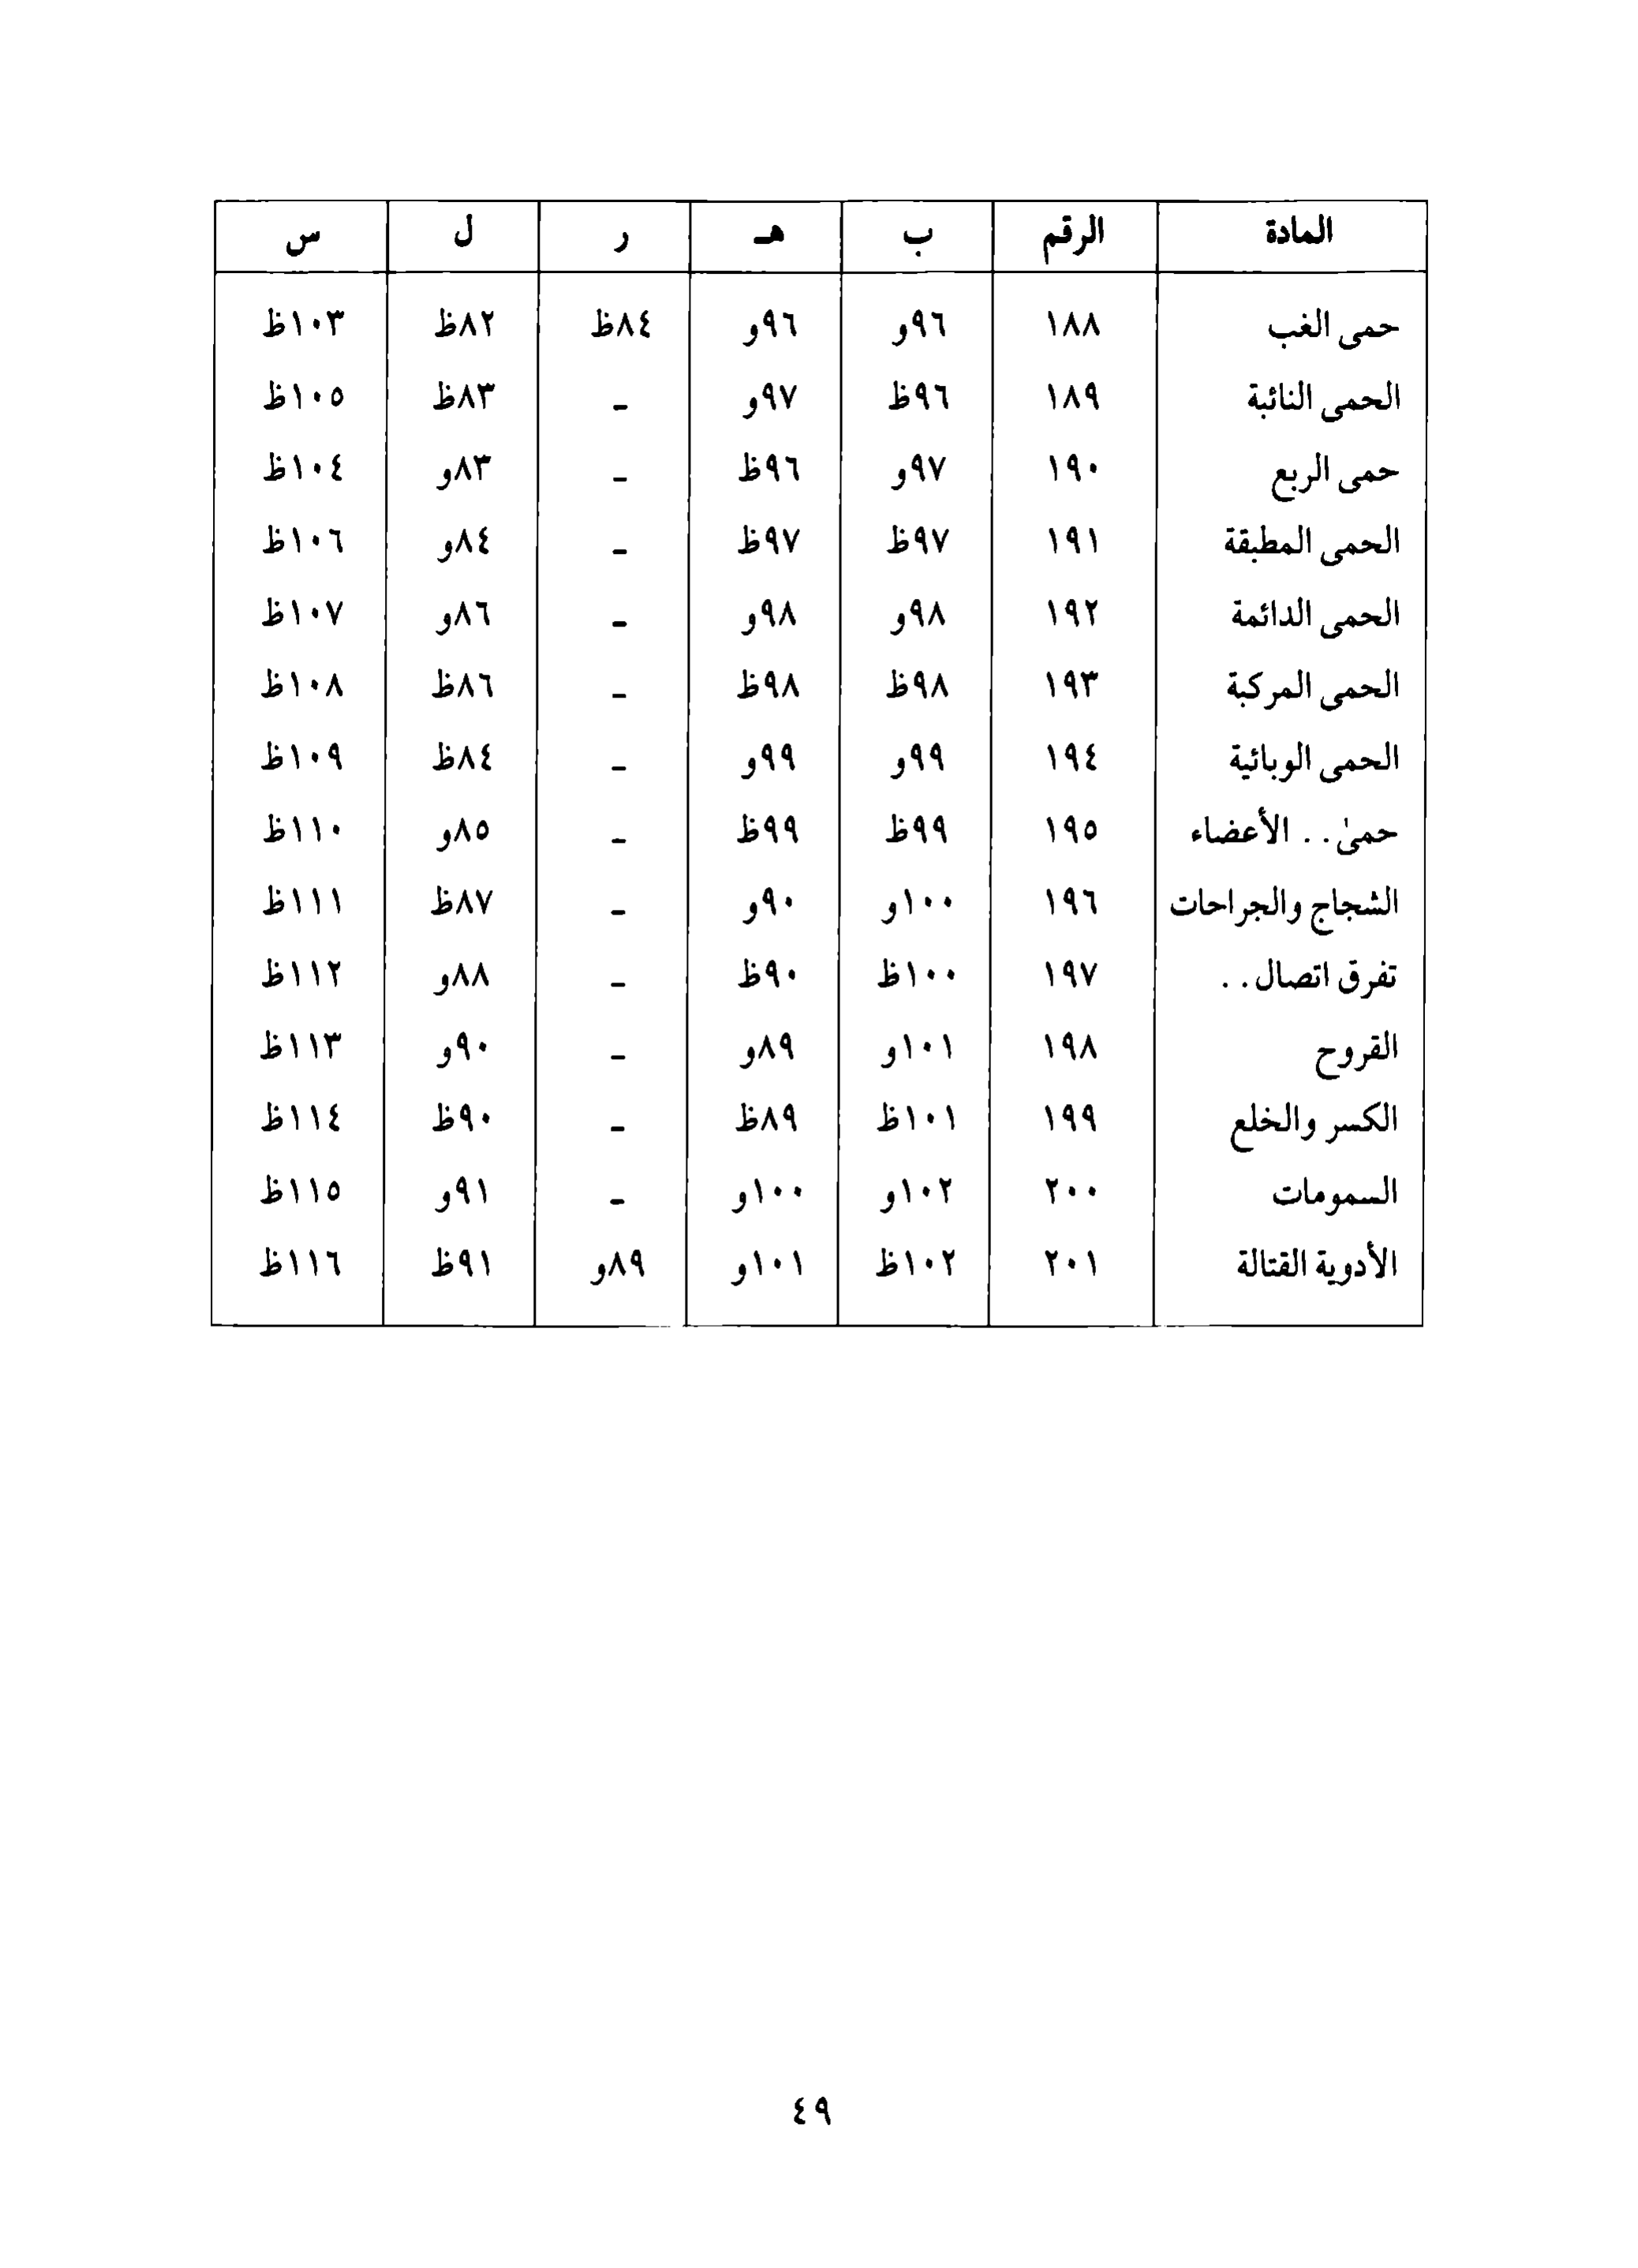 المادة الرقم ب هـ ر ل س
حمى الغب ١٨٨ ٩٦و ٩٦و ٨٤ظ ٨٢ظ ١٠٣ظ
الحمى النائبة ١٨٩ ٩٦ظ ٩٧و - ٨٣ظ ١٠٥ظ
حمى الربع ١٩٠ ٩٧و ٩٦ظ - ٨٣و ١٠٤ظ
الحمى المطبقة ١٩١ ٩٧ظ ٩٧ظ - ٨٤و ١٠٦ظ
الحمى الدائمة ١٩٢ ٩٨و ٩٨و - ٨٦و ١٠٧ظ
الحمى المركبة ١٩٣ ٩٨ظ ٩٨ظ - ٨٦ظ ١٠٨ظ
الحمى الوبائية ١٩٤ ٩٩و ٩٩و - ٨٤ظ ١٠٩ظ
حمىٰ.. الأعضاء ١٩٥ ٩٩ظ ٩٩ظ - ٨٥و ١١٠ظ
الشجاج والجراحات ١٩٦ ١٠٠و ٩٠و - ٨٧ظ ١١١ظ
تفرق اتصال.. ١٩٧ ١٠٠ظ ٩٠ظ - ٨٨و ١١٢ظ
القروح ١٩٨ ١٠١و ٨٩و - ٩٠و ١١٣ظ
الكسر والخلع ١٩٩ ١٠١ظ ٨٩ظ - ٩٠ظ ١١٤ظ
السمومات ٢٠٠ ١٠٢و ١٠٠و - ٩١و ١١٥ظ
الأدوية القتالة ٢٠١ ١٠٢ظ ١٠١و ٨٩و ٩١ظ ١١٦ظ
٤٩